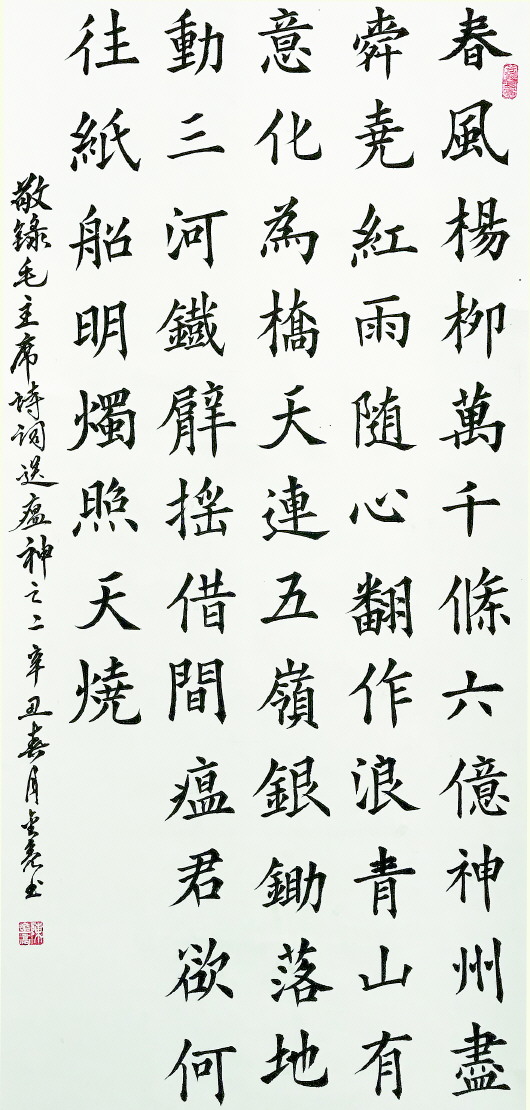 春風楊柳萬千條六億神州盡
舜堯紅雨随心翻作浪青山有
意化為橋天連五嶺銀鋤落地
動三河鐵臂摇借間瘟君欲何
往紙船明燭照天燒
敬錄毛主席詩詞送瘟神之二辛丑春月書